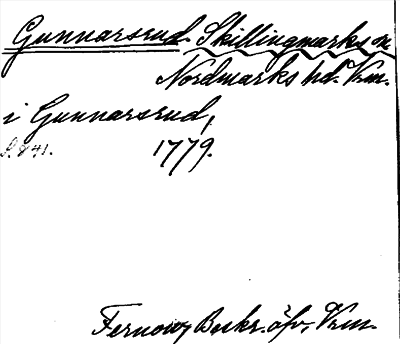 Gunnarsrud. Skillingmarks sn
Nordmarks hd. Vrm.
i Gunnarsrud,
S. 841. 1779.
Fernow, Beskr. öfv. Vrm.